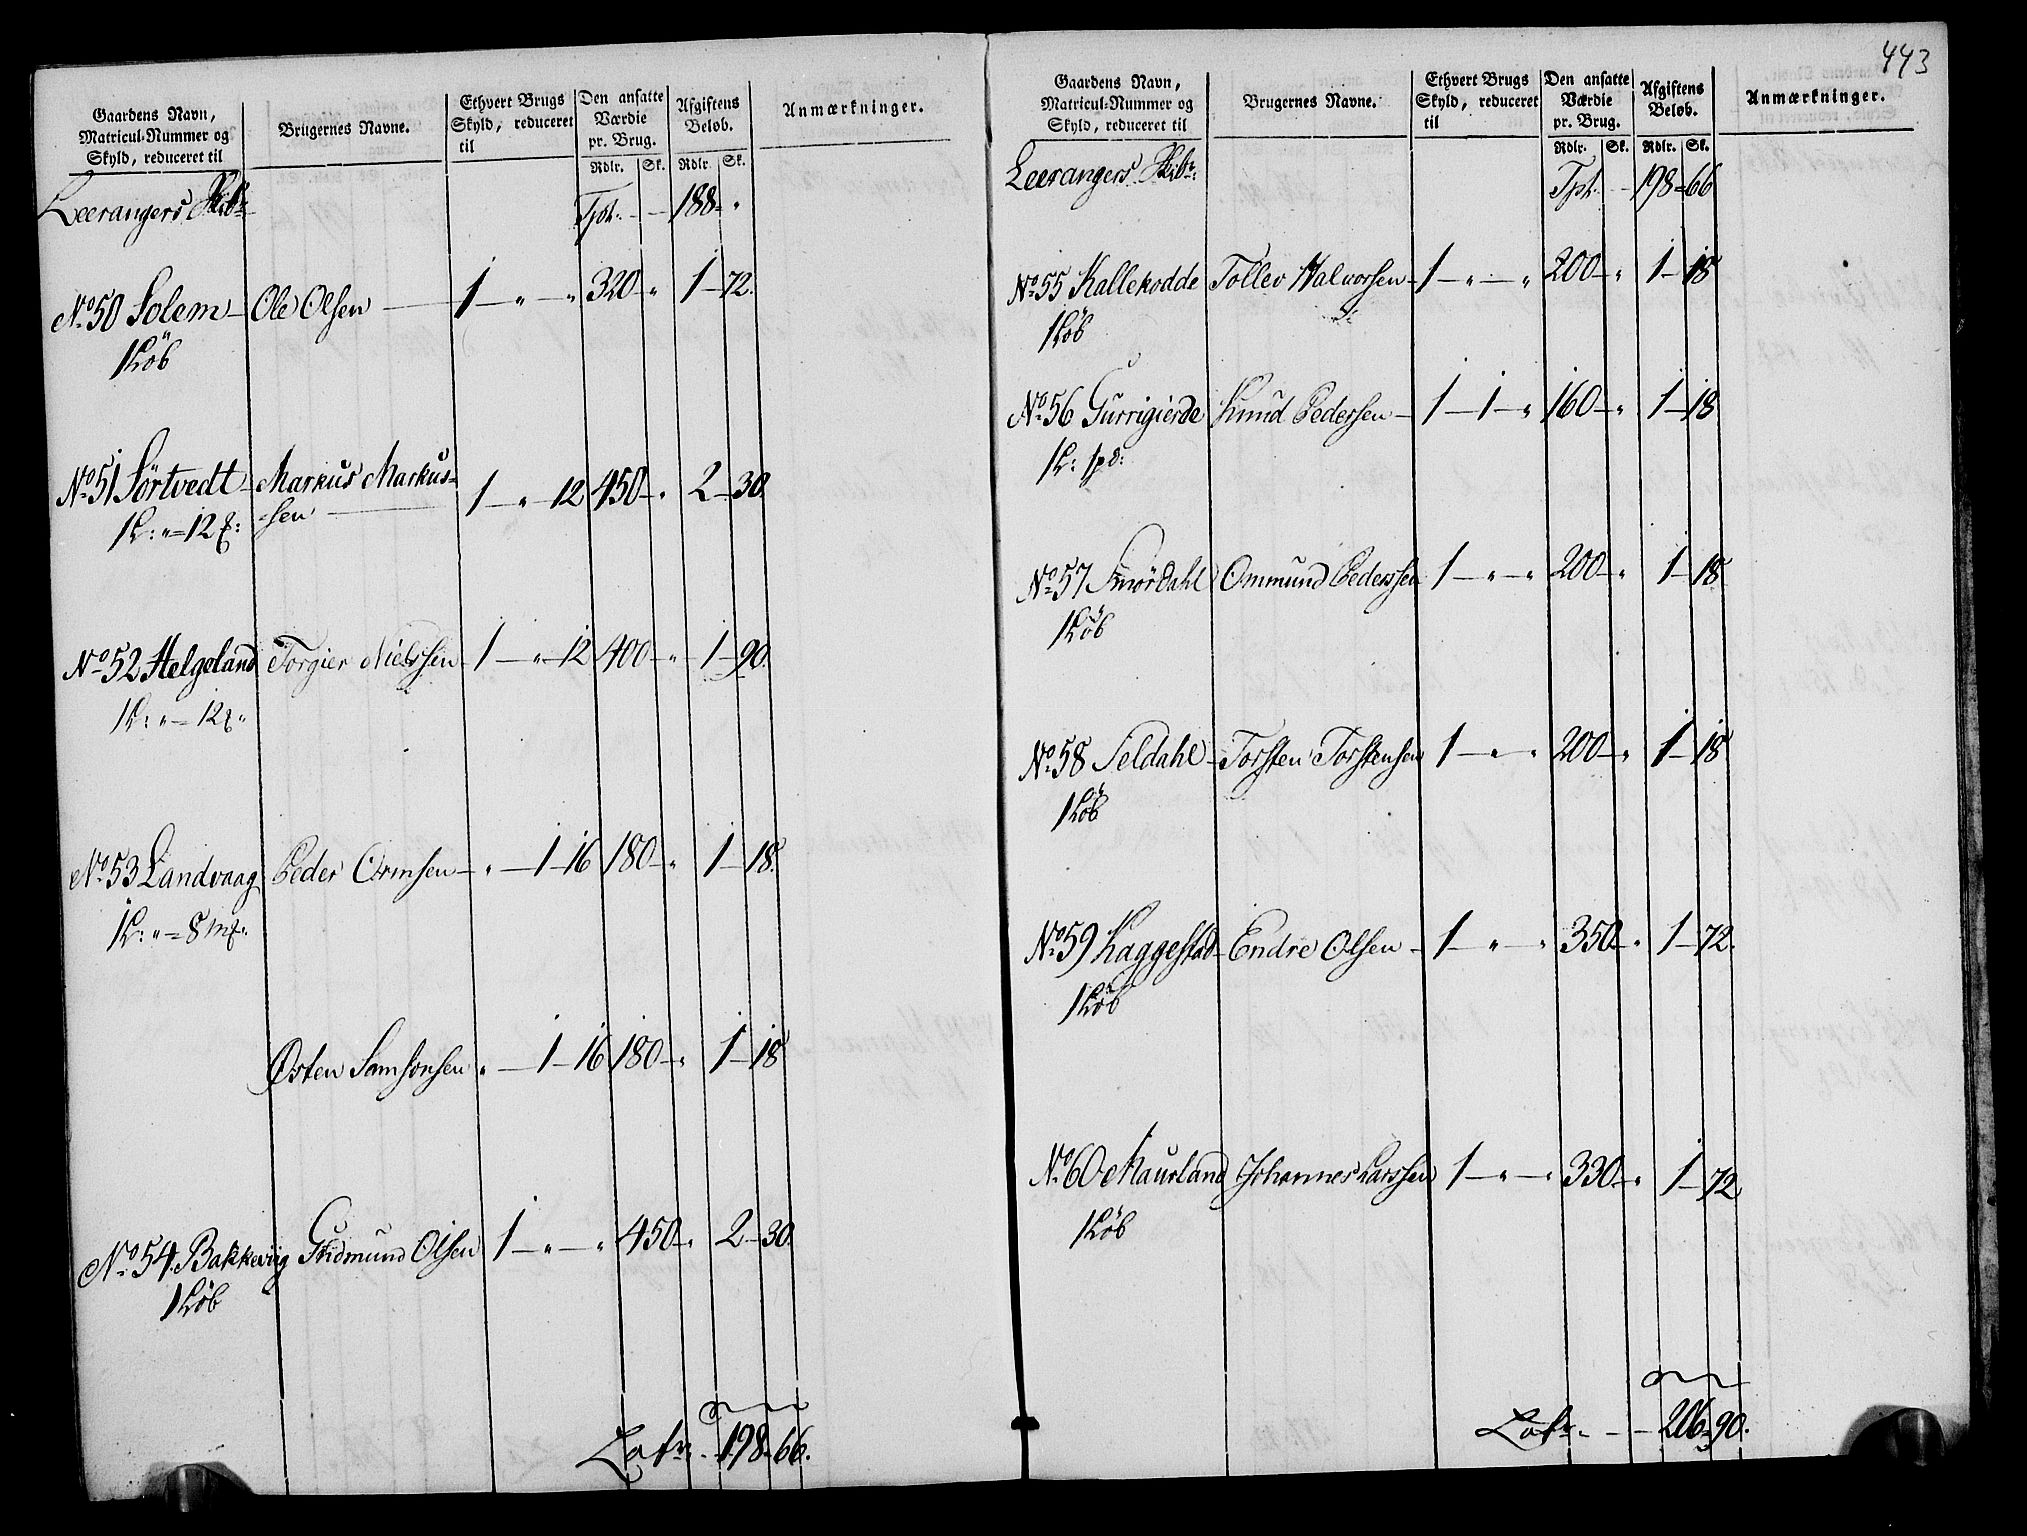 443
Gaardens Navn, Matricul-Nummer og Skyld, reduceret til | Brugernes Navne. | Ethvert Brugs Skyld, reduceret til | Den ansatte Værdie pr. Brug. | Afgiftens Beløb. | Anmærkninger.
Rdlr. Sk. Rdlr. Sk.
Leerangers Skibr: Tpt: - - 188 - "
No 50 Solem - Ole Olsen - 1 - " - " 320 - " 1 - 72.
1 Løb
No 51 Sörtvedt - Markus Markus- 1 - " - 12 450 - " 2 - 30.
1 L: " - 12 ℔: sen
No 52 Helgeland Torgier Nielssen - 1 - " - 12 400 - " 1 - 90.
1 L: " - 12 ℔ "
No 53 Landvaag Peder Ormsen - " - 1 - 16 180 - " 1 - 18.
1 L: " - 8 m℔ "
Østen Samsonsen " - 1 - 16 180 - " 1 - 18
No 54. Bakkeviig Gudmund Olsen 1 - " - " 450 - " 2 - 30.
1 Löb
Latr: - 198 - 66.
Gaardens Navn, Matricul-Nummer og Skyld, reduceret til | Brugernes Navne. | Ethvert Brugs Skyld, reduceret til | Den ansatte Værdie pr. Brug. | Afgiftens Beløb. | Anmærkninger.
Rdlr. Sk. Rdlr. Sk.
Leerangers Skibr: Tpt: - - 198 - 66
No 55 Kallekodde Tollev Halvorsen - 1 - " - " 200 - " 1 - 18
1 Löb
No 56 Gurrigierde Knud Pedersen - 1 - 1 - " 160 - " 1 - 18
1 L: 1 pd:
No 57 Smördahl Ommund Pederssen 1 - " - " 200 - " 1 - 18
1 Löb
No 58 Seldahl - Torsten Torstensen 1 - " - " 200 - " 1 - 18
1 Löb
No 59 Haggestad - Endre Olsen - 1 - " - " 350 - " 1 - 72.
1 Löb
No 60 Maurland Johannes Larssen 1 - " - " 330 - " 1 - 72
1 Löb
Latr: - - - 206 - 90.